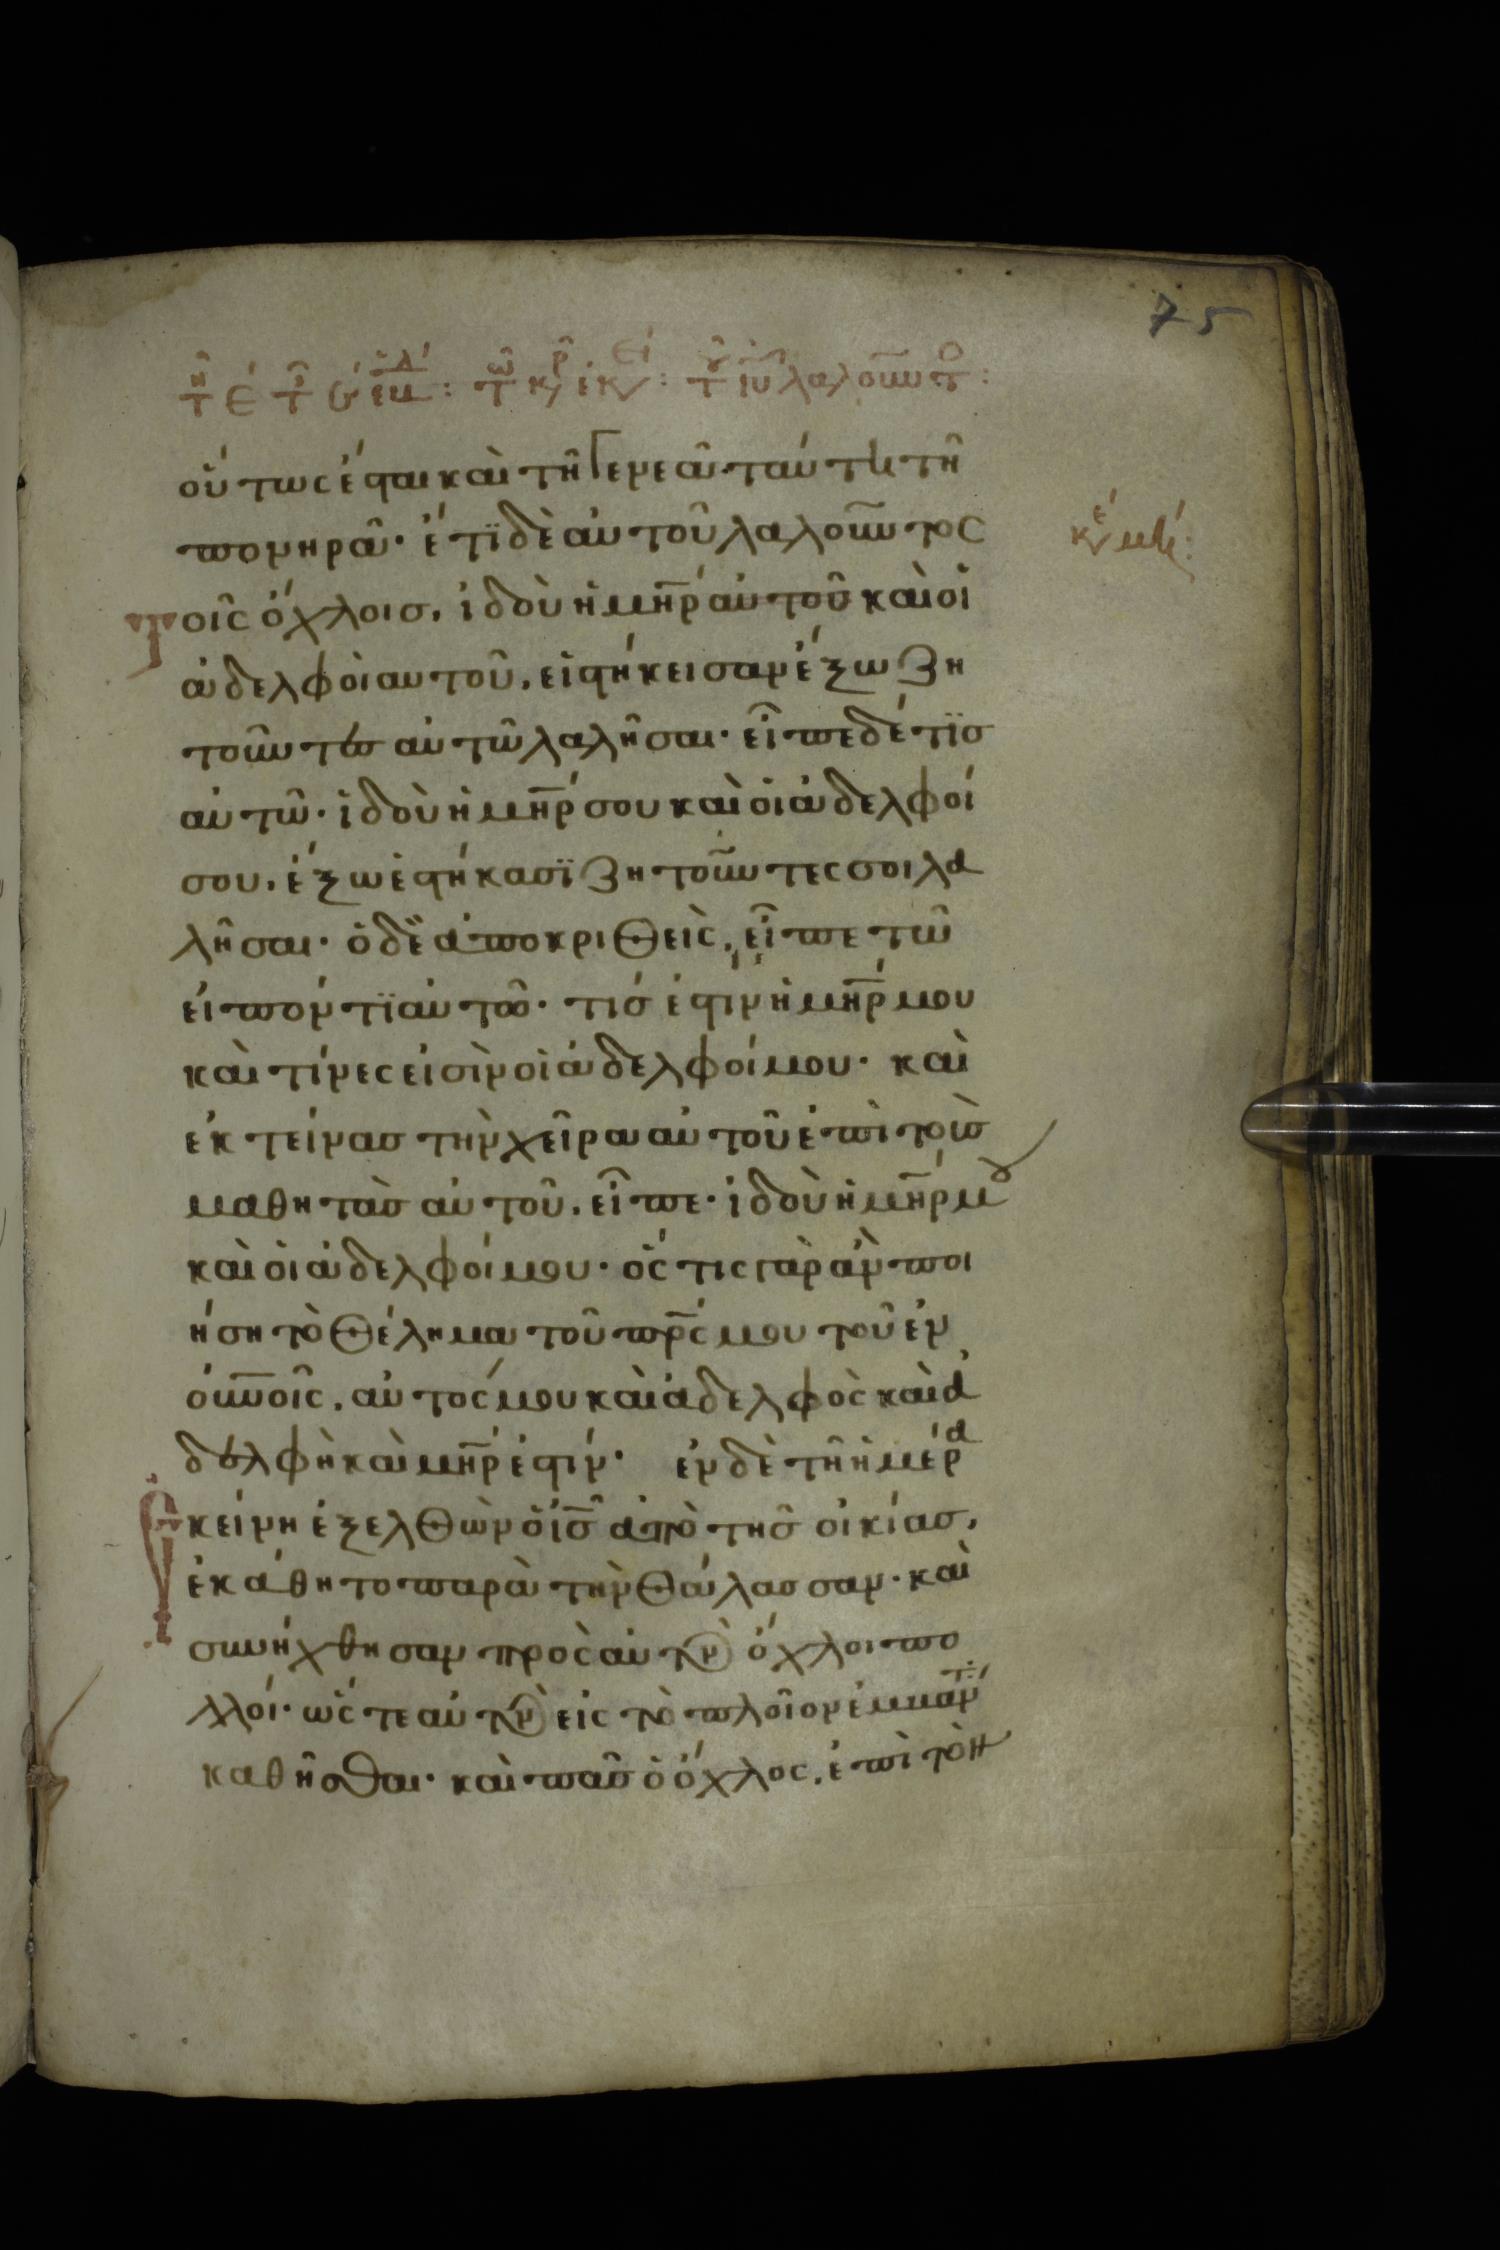 75
οὕτως ἔσται καὶ τῆ Γενεᾶ ταύτη τῆ
πονηρᾶ· ἔτϊ δὲ αὐτοῦ λαλοῦντος
τοῖς ὄχλοισ, ἰδοὺ ἡ μη̅ρ αὐτοῦ καὶ οἱ
ἀδελφοὶ αυτοῦ, εἱστήκεισαν ἔξω ζη
τοῦντεσ αὐτῶ λαλῆσαι· εἶπε δέ τϊσ
αὐτῶ· ἰδοὺ ἡ μη̅ρ σου καὶ οἱ ἀδελφοί
σου, ἔξω ἑστήκασϊ ζητοῦντες σοι λα
λῆσαι· ὁ δὲ ἀποκριθεὶς, εἶπε τῶ
εἰπόντϊ αὐτῶ· τίσ ἐστιν ἡ μη̅ρ μου
καὶ τίνες εἰσὶν οἱ ἀδελφοί μου· καὶ
ἐκτείνασ τὴν χεῖρα αὐτοῦ ἐπὶ τοὺσ
μαθητὰσ αὐτοῦ, εἶπε· ἰδοὺ ἡ μη̅ρ μου
καὶ οἱ ἀδελφοί μου· ὅστις γὰρ ἂν ποι
ήση τὸ θέλημα τοῦ πρ̅ς μου τοῦ ἐν
ου̅νοῖς, αὐτός μου καὶ ἀδελφὸς καὶ ἀ
δελφὴ καὶ μη̅ρ ἐστίν· ἐν δὲ τῆ ἡμέρα
Ἐκείνη ἐξελθὼν ὁ ι̅σ ἀπὸ τῆσ οἰκίασ,
ἐκάθητο παρὰ τὴν θάλασσαν· καὶ
συνήχθησαν πρὸς αὐτὸν ὄχλοι πο
λλοί· ὥστε αὐτὸν εἰς τὸ πλοῖον ἐμβάντ
καθῆσθαι· καὶ πᾶσ ὁ ὄχλος, ἐπὶ τὸν